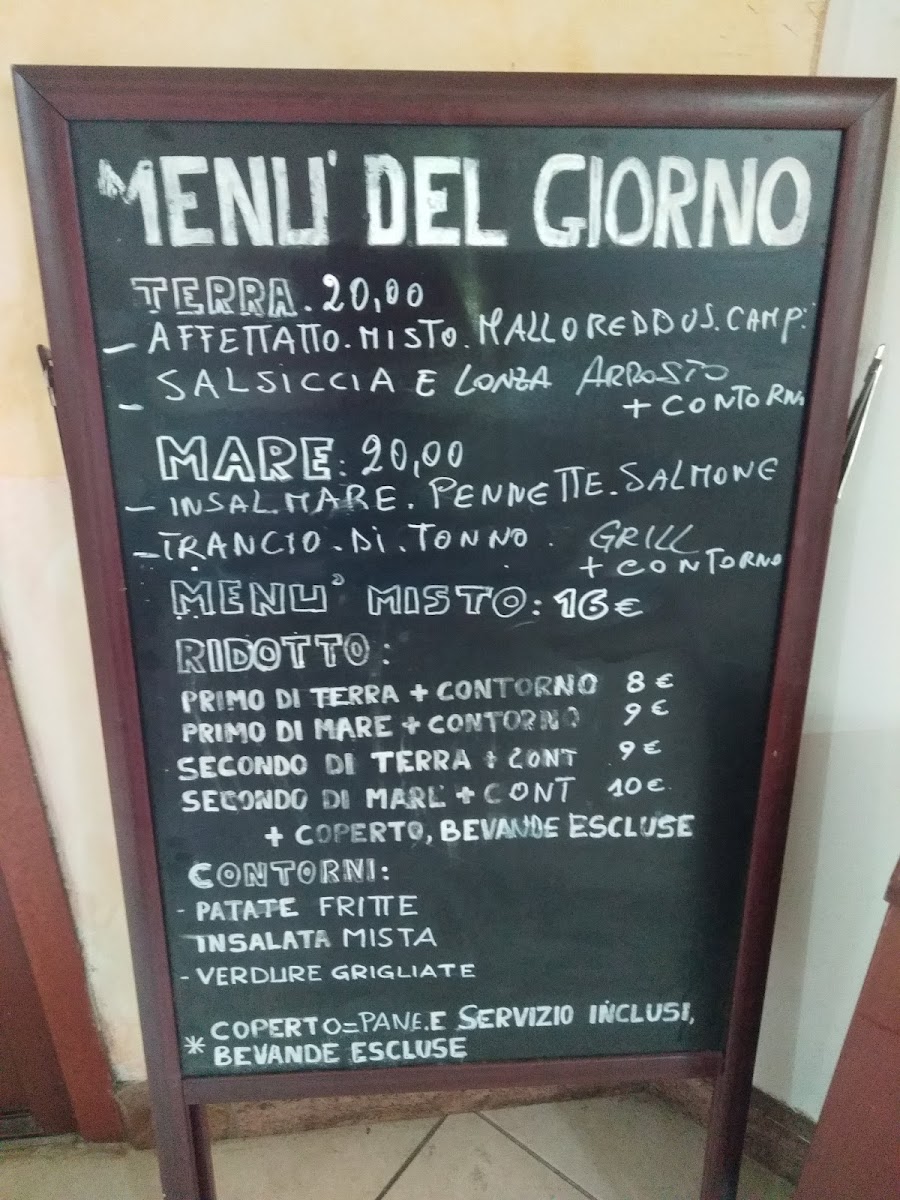 MENU' DEL GIORNO
TERRA. 20,00
- AFFETTATO. MISTO. MALLOREDDUS. CAMP.
- SALSICCIA E LONZA ARROSTO
+ CONTORNI
MARE: 20,00
- INSAL. MARE. PENNETTE. SALMONE
- TRANCIO. DI. TONNO. GRILL
+ CONTORNO
MENU' MISTO: 16€
RIDOTTO:
PRIMO DI TERRA + CONTORNO 8 €
PRIMO DI MARE + CONTORNO 9 €
SECONDO DI TERRA + CONT 9 €
SECONDO DI MARE + CONT 10 €
+ COPERTO, BEVANDE ESCLUSE
CONTORNI:
- PATATE FRITTE
INSALATA MISTA
- VERDURE GRIGLIATE
COPERTO=PANE.E SERVIZIO INCLUSI,
* BEVANDE ESCLUSE